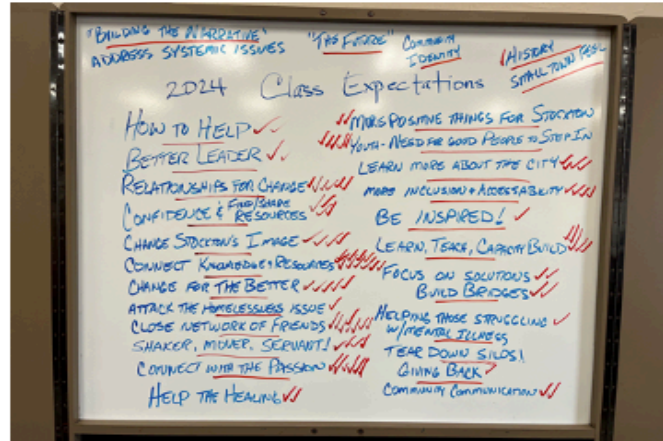 "BUILDING THE NARRATIVE"
ADDRESS SYSTEMIC ISSUES
"THE FUTURE"
COMMUNITY
IDENTITY
HISTORY
SMALL TOWN FEEL
2024 Class Expectations
HOW TO HELP
BETTER LEADER
RELATIONSHIPS FOR CHANGE
CONFIDENCE & FIND/SHARE RESOURCES
CHANGE STOCKTON'S IMAGE
CONNECT KNOWLEDGE & RESOURCES
CHANGE FOR THE BETTER
ATTACK THE HOMELESSNESS ISSUE
CLOSE NETWORK OF FRIENDS
SHAKER, MOVER, SERVANT!
CONNECT WITH THE PASSION
HELP THE HEALING
MORE POSITIVE THINGS FOR STOCKTON
YOUTH - NEED FOR GOOD PEOPLE TO STEP IN
LEARN MORE ABOUT THE CITY
MORE INCLUSION & ACCESSABILITY
BE INSPIRED!
LEARN, TEACH, CAPACITY BUILD
FOCUS ON SOLUTIONS
BUILD BRIDGES
HELPING THOSE STRUGGLING
W/MENTAL ILLNESS
TEAR DOWN SILOS!
GIVING BACK
COMMUNITY COMMUNICATION